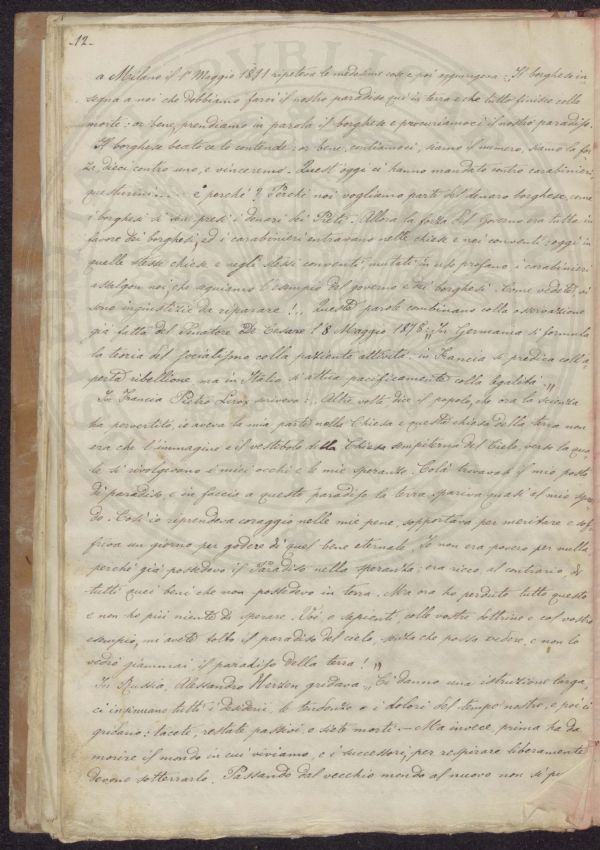 -12-
a Milano il 1º Maggio 1891 ripeteva le medesime cose e poi aggiungeva: Il borghese in
segna a noi che dobbiamo farci il nostro paradiso qui in terra e che tutto finisce colla
morte: or bene, prendiamo in parola il borghese e procuriamoci il nostro paradiso.
Il borghese beato ce lo contende: or bene, contiamoci, siamo il numero, siamo la for
za, dieci contro uno, e vinceremo. Quest'oggi ci hanno mandato contro carabinieri,
questurini..... e perchè? Perchè noi vogliamo parte del denaro borghese, come
i borghesi si son presi i denari dei Preti. Allora la forza del Governo era tutta in
favore dei borghesi, ed i carabinieri entravano nelle chiese e nei conventi; oggi in
quelle stesse chiese e negli stessi conventi mutati in uso profano i carabinieri
assalgon noi che seguiamo l'esempio del governo e dei borghesi. Come vedete vi
sono ingiustizie da riparare!.. Queste parole combinano colla osservazione
già fatta dal Senatore De Cesare l'8 Maggio 1878: „In Germania si formula
la teoria del socialismo colla paziente attività, in Francia si predica coll'a-
perta ribellione, ma in Italia si attua pacificamente colla legalità.„
In Francia Pietro Leroy scriveva: „Altre volte dice il popolo, che ora la scienza
ha pervertito, io aveva la mia parte nella Chiesa e questa chiesa della terra non
era che l'immagine e il vestibolo della Chiesa sempiterna del Cielo, verso la qua
le si rivolgevano i miei occhi e le mie speranze. Colà trovavasi il mio posto
di paradiso, e in faccia a questo paradiso la terra spariva quasi al mio sguar
do. Così io riprendeva coraggio nelle mie pene, sopportava per meritare e sof
friva un giorno per godere di quel bene eternale. Io non era povero per nulla
perchè già possedevo il Paradiso nella speranza: era ricco al contrario di
tutti quei beni che non possedevo in terra. Ma ora ho perduto tutto questo
e non ho più niente di sperare. Voi, o sapienti, colle vostre dottrine e col vostro
esempio, mi avete tolto il paradiso del cielo, senza che possa vedere, e non lo
vedrò giammai, il paradiso della terra!„
In Russia, Alessandro Herzen gridava „Ci danno una istruzione larga,
ci insinuano tutti i desiderii, le tendenze e i dolori del tempo nostro, e poi ci
gridano: tacete, restate passivi, o siete morti. - Ma invece, prima ha da
morire il mondo in cui viviamo, e i successori, per respirare liberamente
devono sotterrarlo. Passando dal vecchio mondo al nuovo non si può